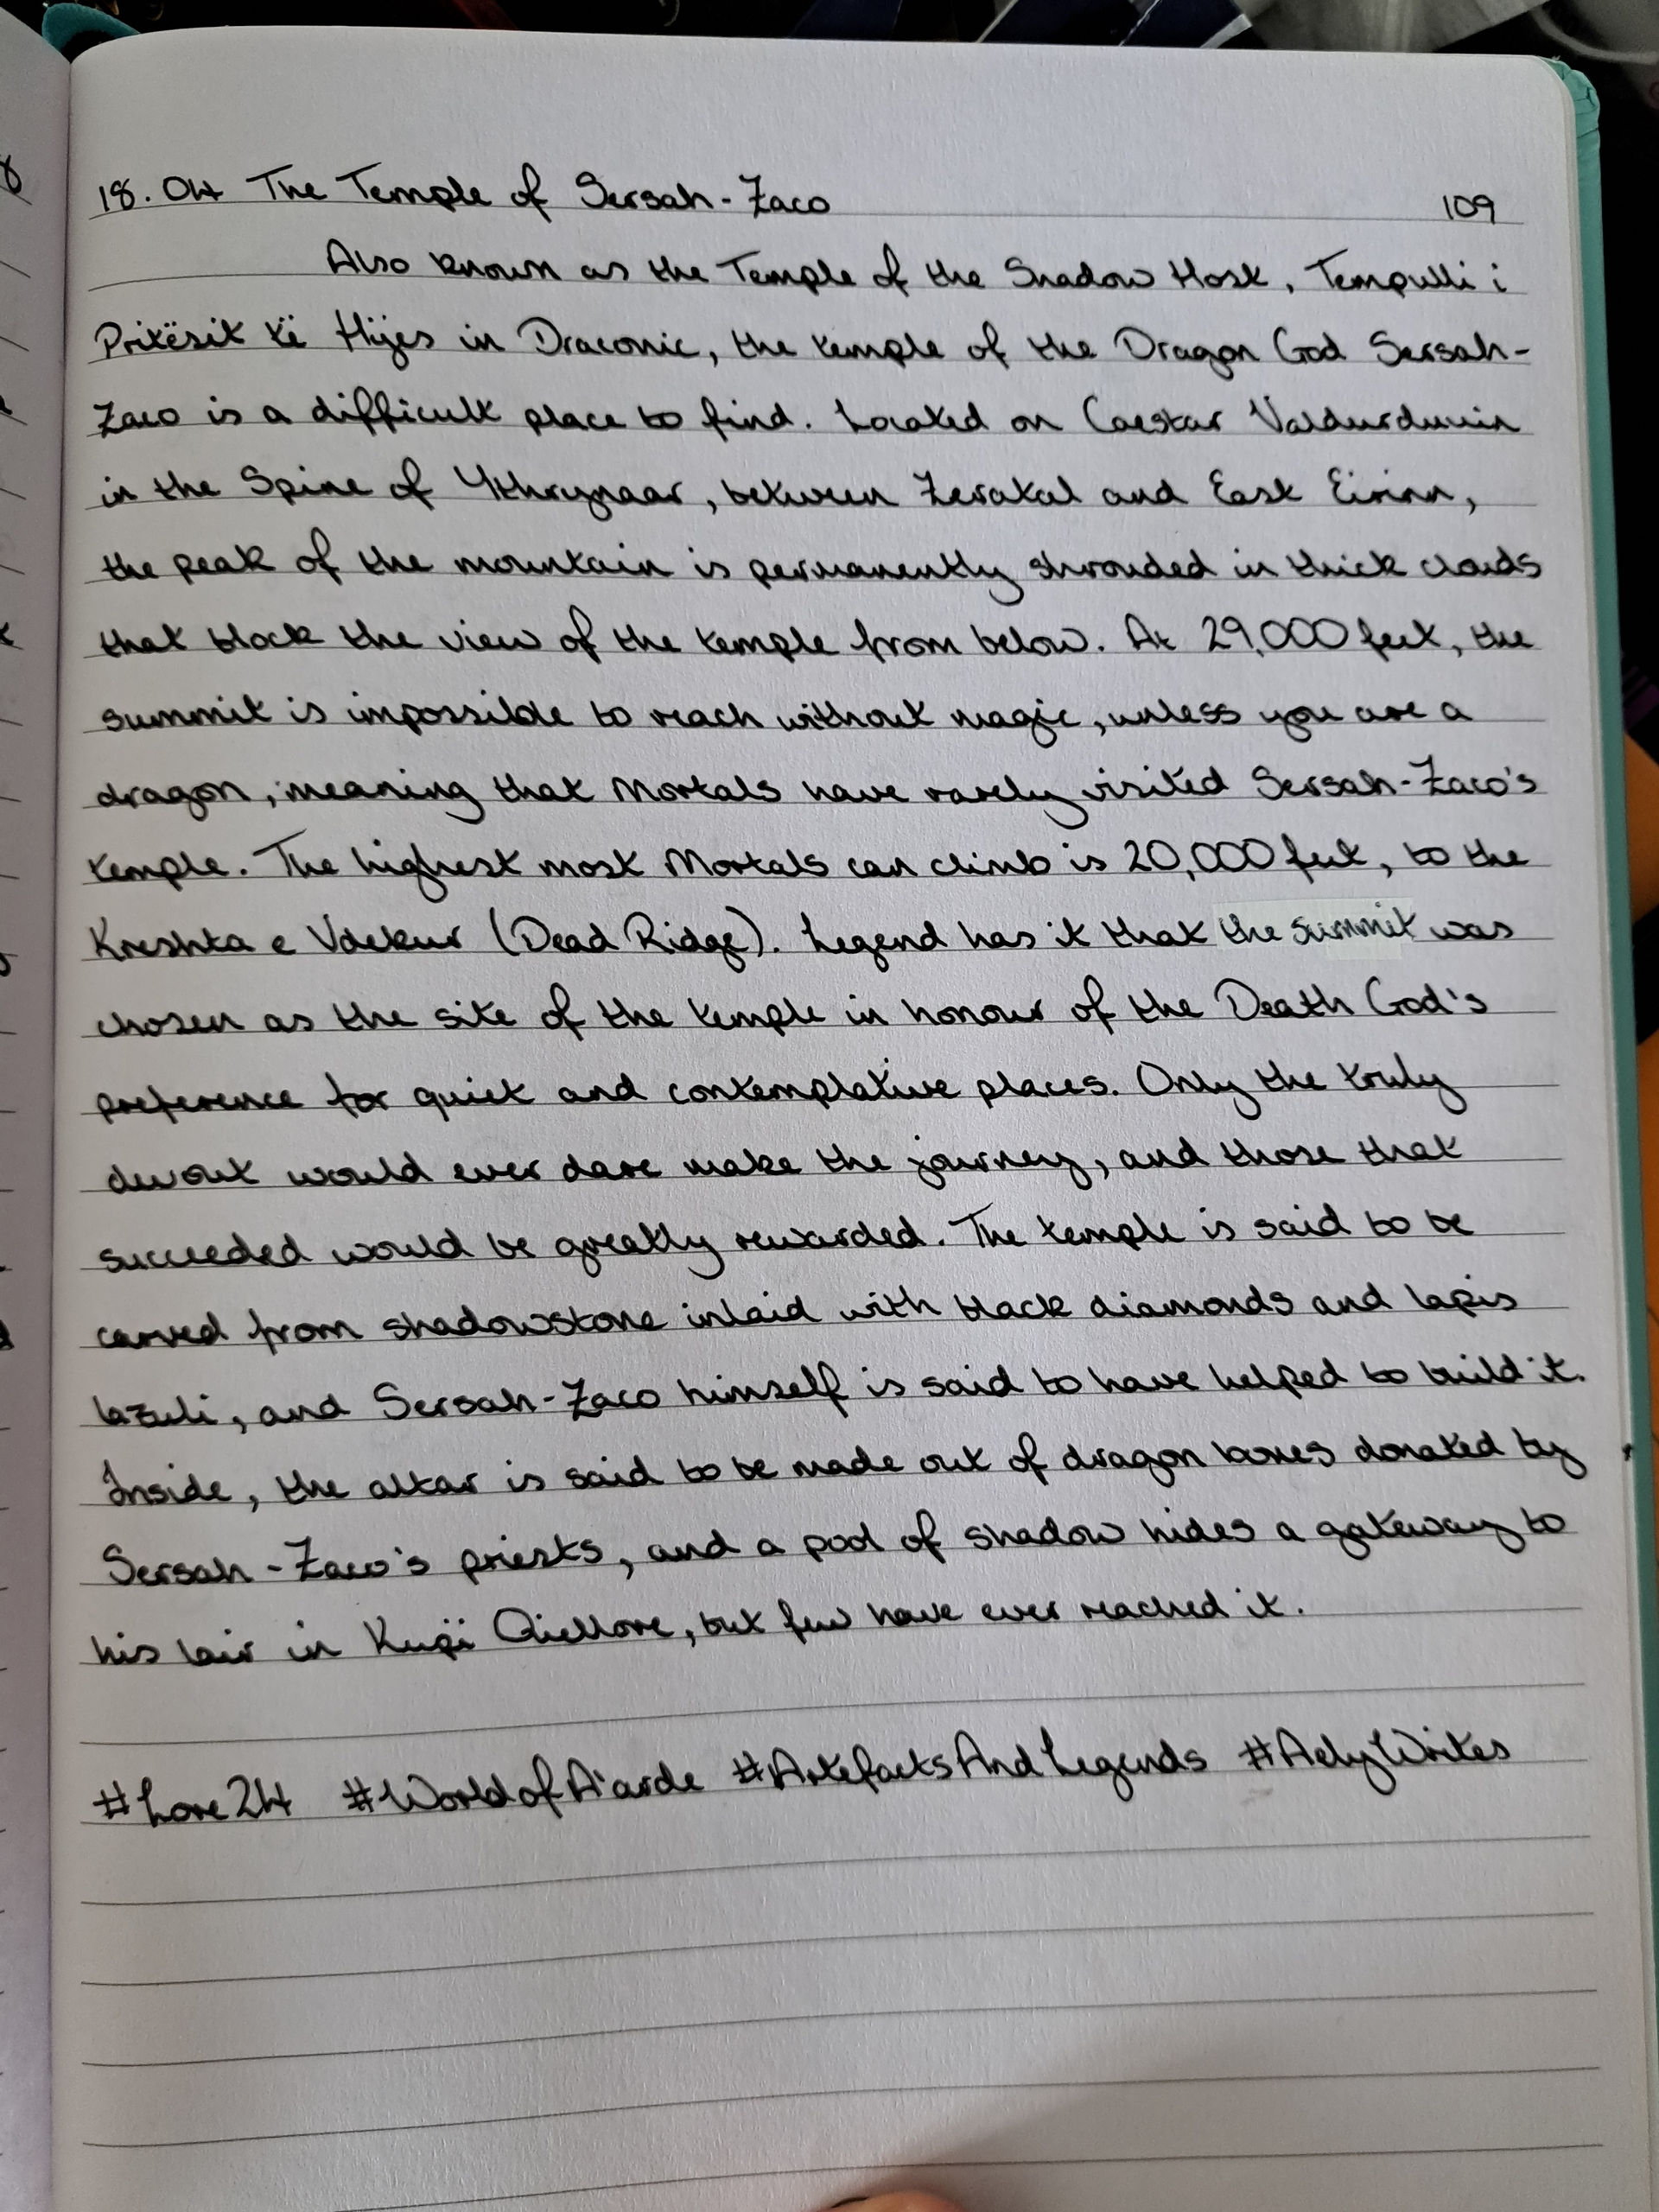 18.04 The Temple of Sersah-Zaco 109
Also known as the Temple of the Shadow Host, Tempulli i
Pritësit të Hijes in Draconic, the temple of the Dragon God Sersah-
Zaco is a difficult place to find. Located on Caestar Valdurdunin
in the Spine of Ythrynaar, between Zerakal and East Eirinn,
the peak of the mountain is permanently shrouded in thick clouds
that block the view of the temple from below. At 29,000 feet, the
summit is impossible to reach without magic, unless you are a
dragon, meaning that Mortals have rarely visited Sersah-Zaco's
temple. The highest most Mortals can climb is 20,000 feet, to the
Kreshta e Vdekur (Dead Ridge). Legend has it that the summit was
chosen as the site of the temple in honour of the Death God's
preference for quiet and contemplative places. Only the truly
devout would ever dare make the journey, and those that
succeeded would be greatly rewarded. The temple is said to be
carved from shadowstone inlaid with black diamonds and lapis
lazuli, and Sersah-Zaco himself is said to have helped to build it.
Inside, the altar is said to be made out of dragon bones donated by
Sersah-Zaco's priests, and a pool of shadow hides a gateway to
his lair in Kupi Qiellore, but few have ever reached it.
#Lore24 #WorldofA'arde #ArtefactsAndLegends #AelyWrites